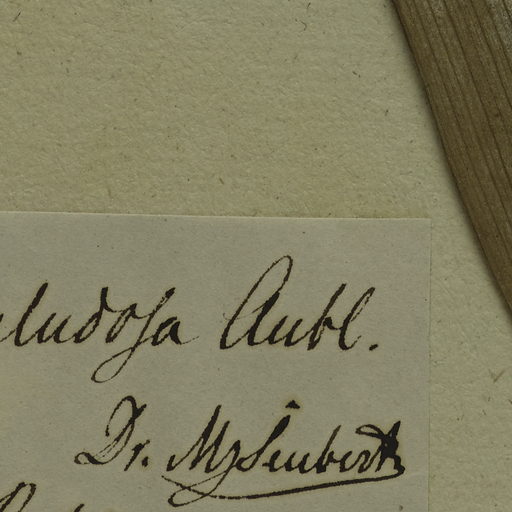 ludosa Aubl.
Dr. M. Seubert